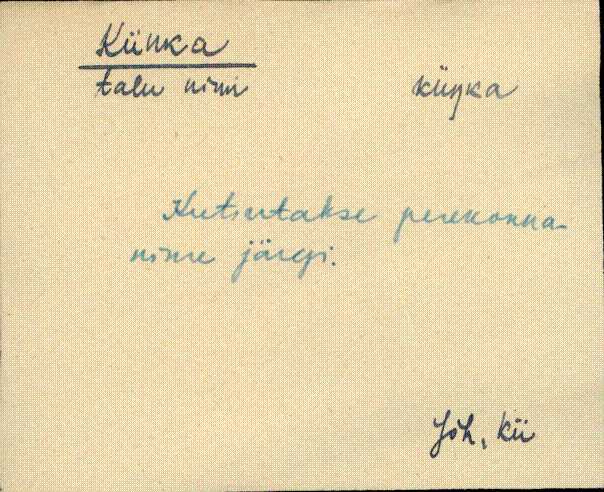 Künka
talu nimi küŋka
Kutsutakse perekonna-
nime järgi.
Jõh, Kü